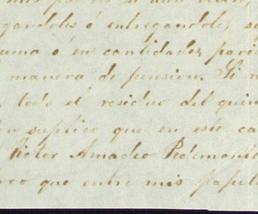 gandoles o entregandoles, su
uma o en cantidades parci
manera de pension. Si n
todo el residuo del quin
suplico que en este ca
Victor Amadeo Pedemonte
que entre mis papele